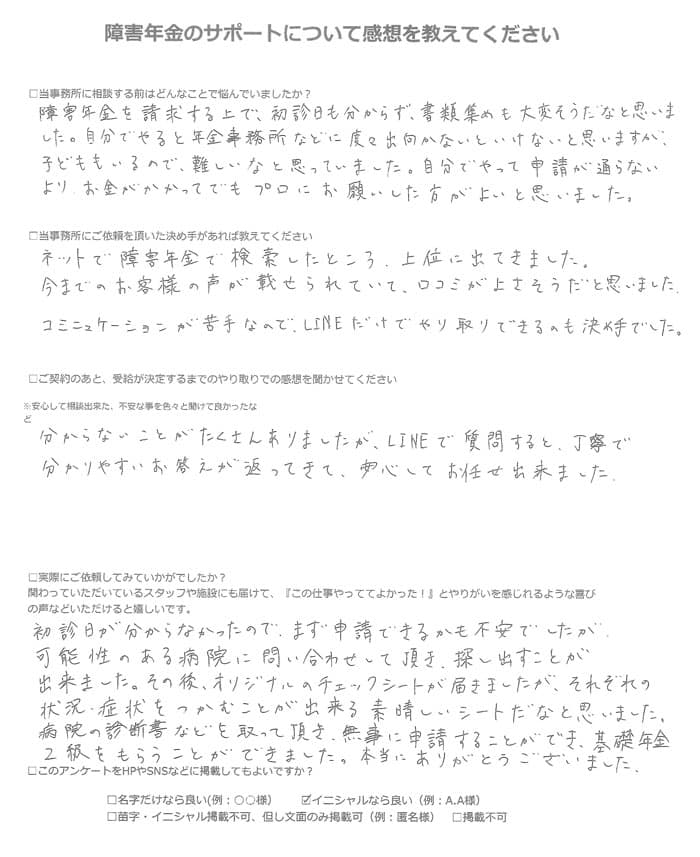 障害年金のサポートについて感想を教えてください
□当事務所に相談する前はどんなことで悩んでいましたか？
障害年金を請求する上で、初診日も分からず、書類集めも大変そうだなと思いま
した。自分でやると年金事務所などに度々出向かないといけないと思いますが、
子どももいるので、難しいなと思っていました。自分でやって申請が通らない
より、お金がかかってでもプロにお願いした方がよいと思いました。
□当事務所にご依頼を頂いた決め手があれば教えてください
ネットで障害年金で検索したところ、上位に出てきました。
今までのお客様の声が載せられていて、口コミがよさそうだと思いました。
コミニュケーションが苦手なので、LINEだけでやり取りできるのも決め手でした。
□ご契約のあと、受給が決定するまでのやり取りでの感想を聞かせてください
※安心して相談出来た、不安な事を色々と聞けて良かったな
ど
分からないことがたくさんありましたが、LINEで質問すると、丁寧で
分かりやすいお答えが返ってきて、安心してお任せ出来ました。
□実際にご依頼してみていかがでしたか？
関わっていただいているスタッフや施設にも届けて、『この仕事やっててよかった！』とやりがいを感じれるような喜び
の声などいただけると嬉しいです。
初診日が分からなかったので、まず申請できるかも不安でしたが、
可能性のある病院に問い合わせして頂き、探し出すことが
出来ました。その後、オリジナルのチェックシートが届きましたが、それぞれの
状況・症状をつかむことが出来る素晴しいシートだなと思いました。
病院の診断書などを取って頂き、無事に申請することができ、基礎年金
2級をもらうことができました。本当にありがとうございました。
□このアンケートをHPやSNSなどに掲載してもよいですか？
□名字だけなら良い(例：○○様）　☑イニシャルなら良い（例：A.A様）
□苗字・イニシャル掲載不可、但し文面のみ掲載可（例：匿名様）　□掲載不可